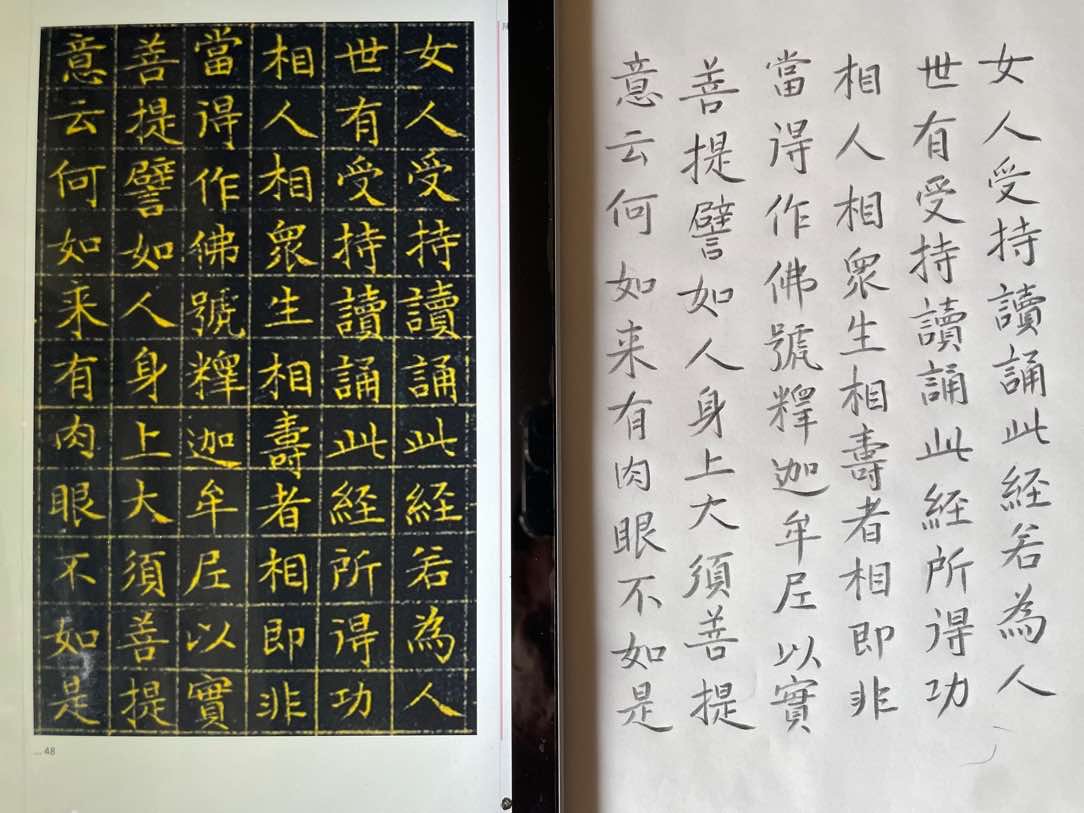 女人受持讀誦此經若為人
世有受持讀誦此經所得功
相人相眾生相壽者相即非
當得作佛號釋迦牟尼以實
善提譬如人身上大須善提
意云何如来有肉眼不如是
48
女人受持讀誦此經若為人
世有受持讀誦此經所得功
相人相眾生相壽者相即非
當得作佛號釋迦牟尼以實
善提譬如人身上大須善提
意云何如来有肉眼不如是